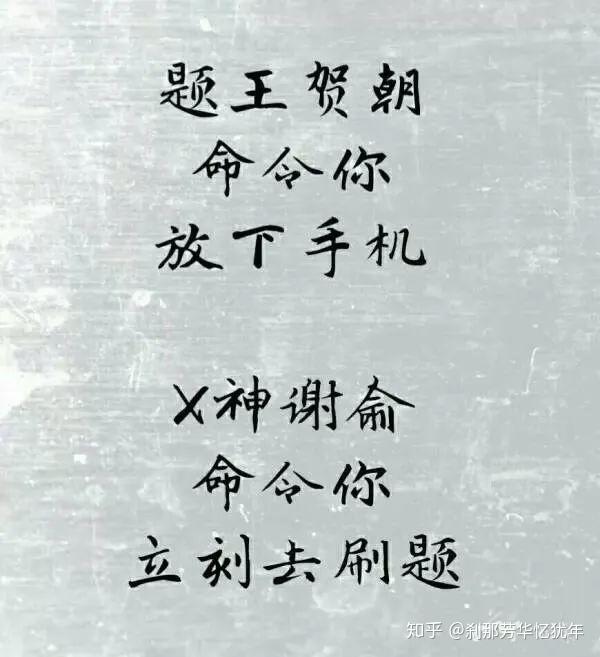 题王贺朝
命令你
放下手机
X神谢俞
命令你
立刻去刷题
知乎 @刹那芳华忆犹年